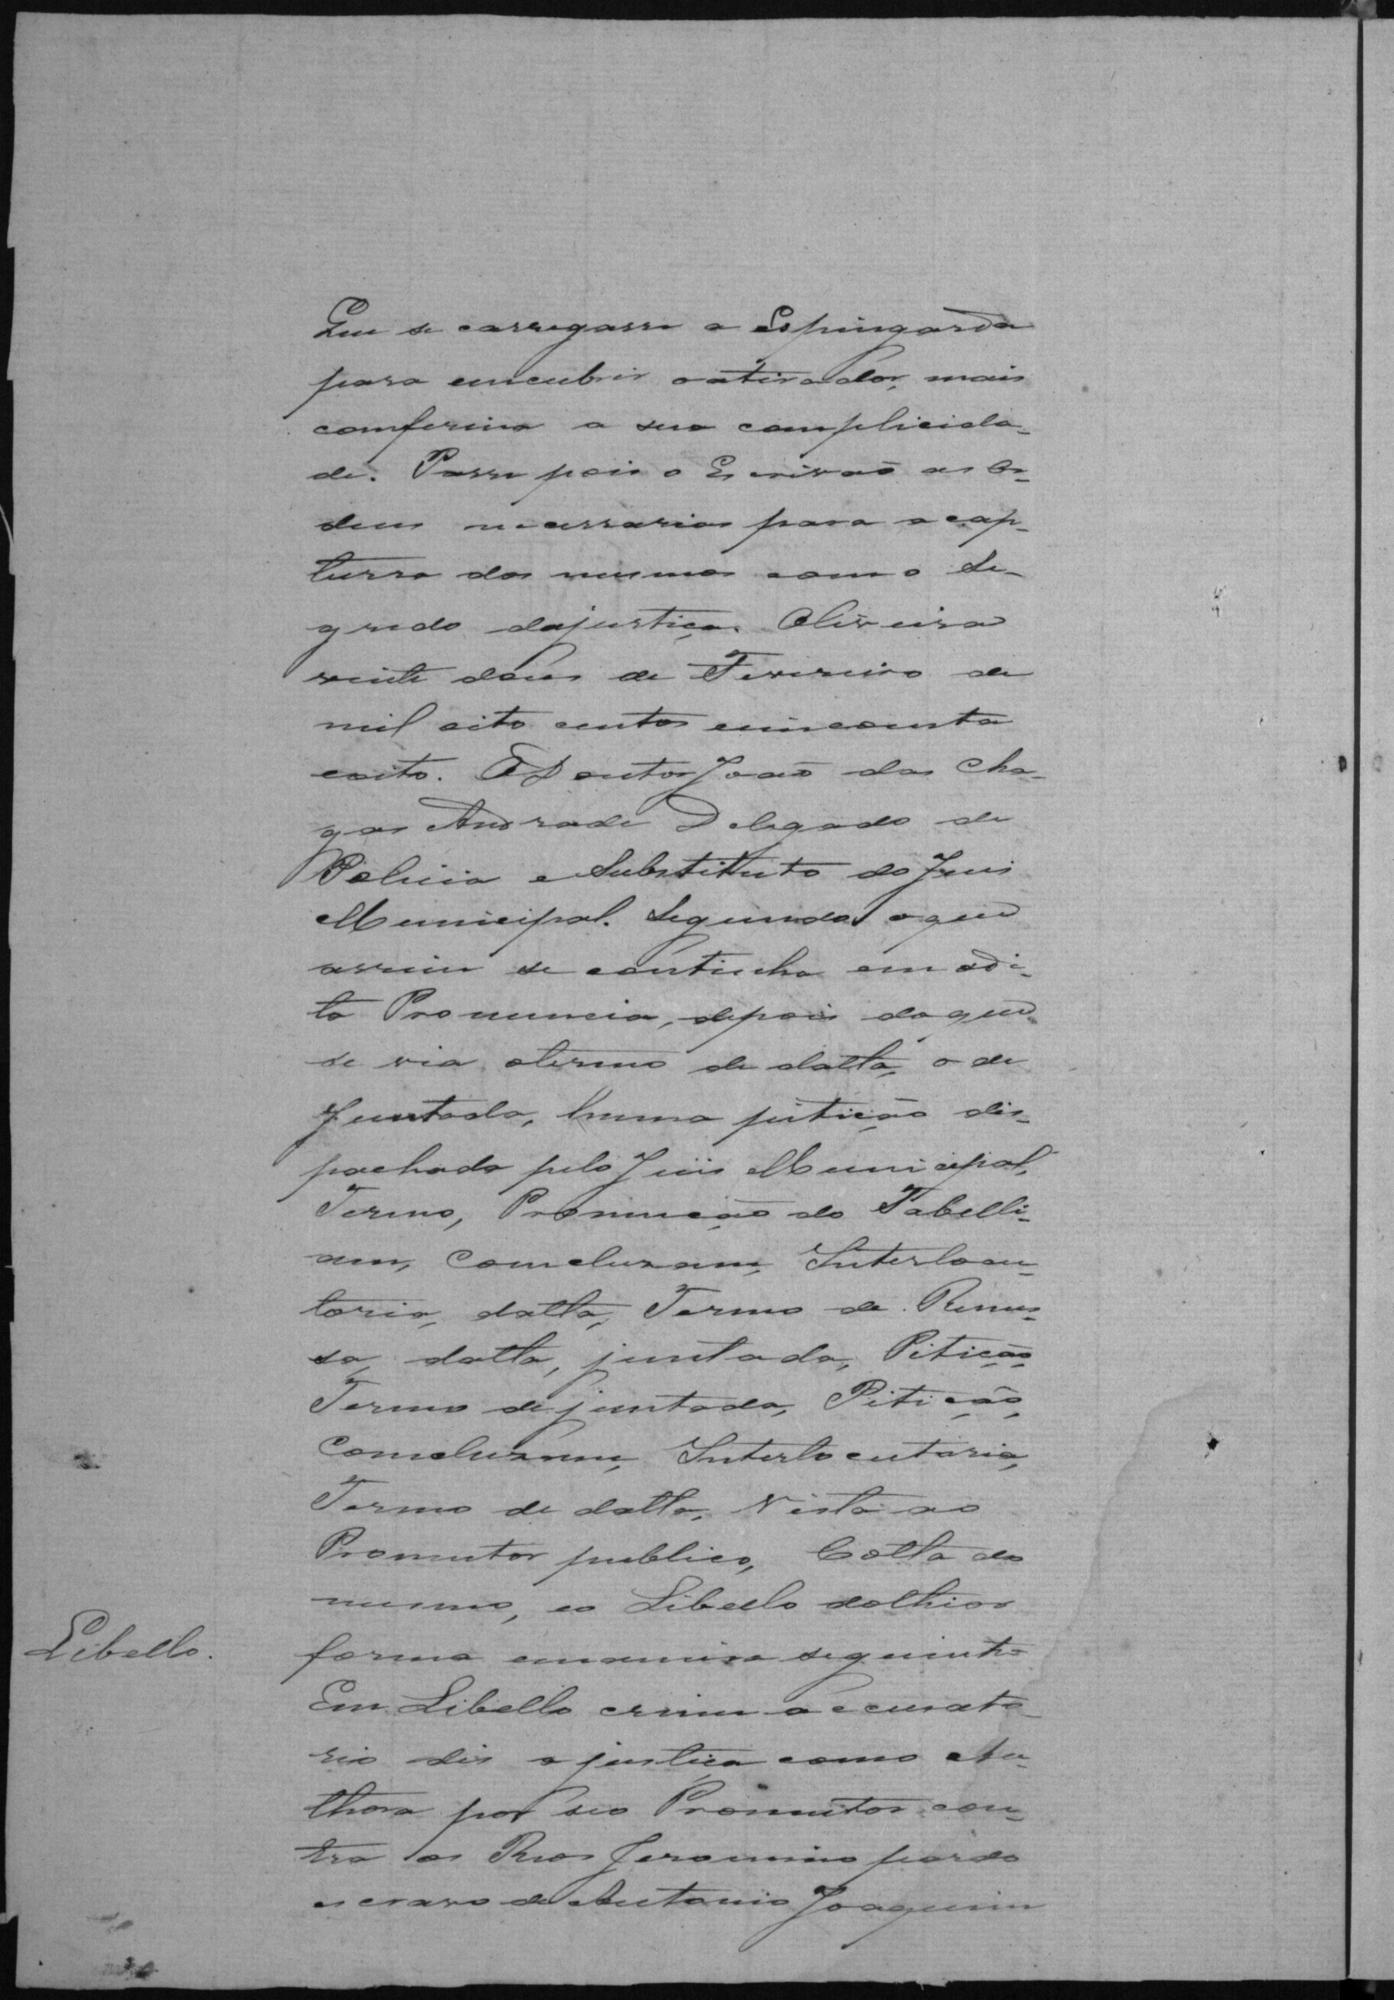 Que se carregasse a Espingarda
para encubrir o atirador, mais
comferma a sua complicida-
de. Passe pois o Escrivaõ as Or-
dens necessarias para a cap-
turra dos mesmos com o Se-
gredo dajustiça. Oliveira
vinte dous de Fevereiro de
mil oito centos cincoenta
eoito. O Doutor Joaõ das Cha-
gas Andrade Delegado de
Policia e Substituto do Juis
Municipal. Segundo o que
assim se continha em adi-
ta Pronuncia, depois do que
se via otermo de datta, o de
Juntada, huma pitição dis-
pachada pelo Juis Municipal,
Termo, Promoção do Tabelli-
am, Comcluzam, Interlocu-
toria, datta, Termo de Remes-
sa, datta, juntada, Pitição,
Termo de juntada, Pitição,
Comcluzam, Interlocutoria,
Termo de datta, Vista ao
Promutor publico, Cotta do
mesmo, eo Libello dothior
Libello.
forma emaneira seguinte
Em Libello crime accusato-
rio dis a justiça como Au-
thora por seo Promutor con-
tra os Reos Jeronimo pardo
escravo de Antonio Joaquim